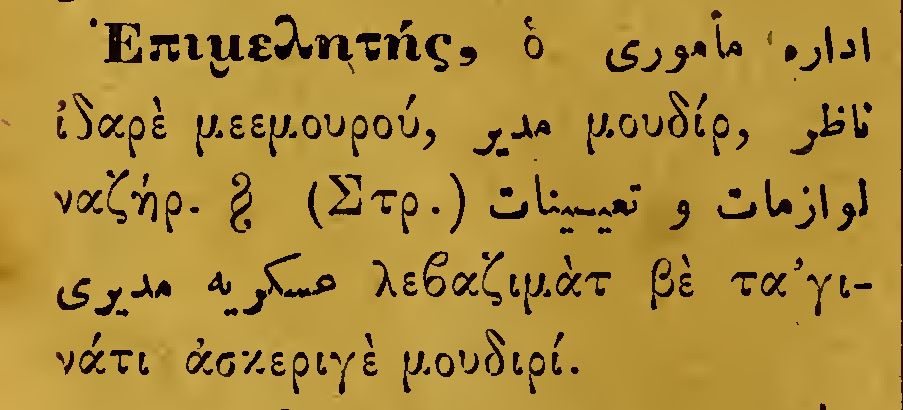 Ἐπιμελητής, ὁ اداره مأموری
ἰδαρὲ μεεμουρού, مدیر μουδίρ, ناظر
ναζήρ. § (Στρ.) لوازمات و تعیینات
عسکریه مدیری λεβαζιμὰτ βὲ τα’γι-
νάτι ἀσκεριγὲ μουδιρί.